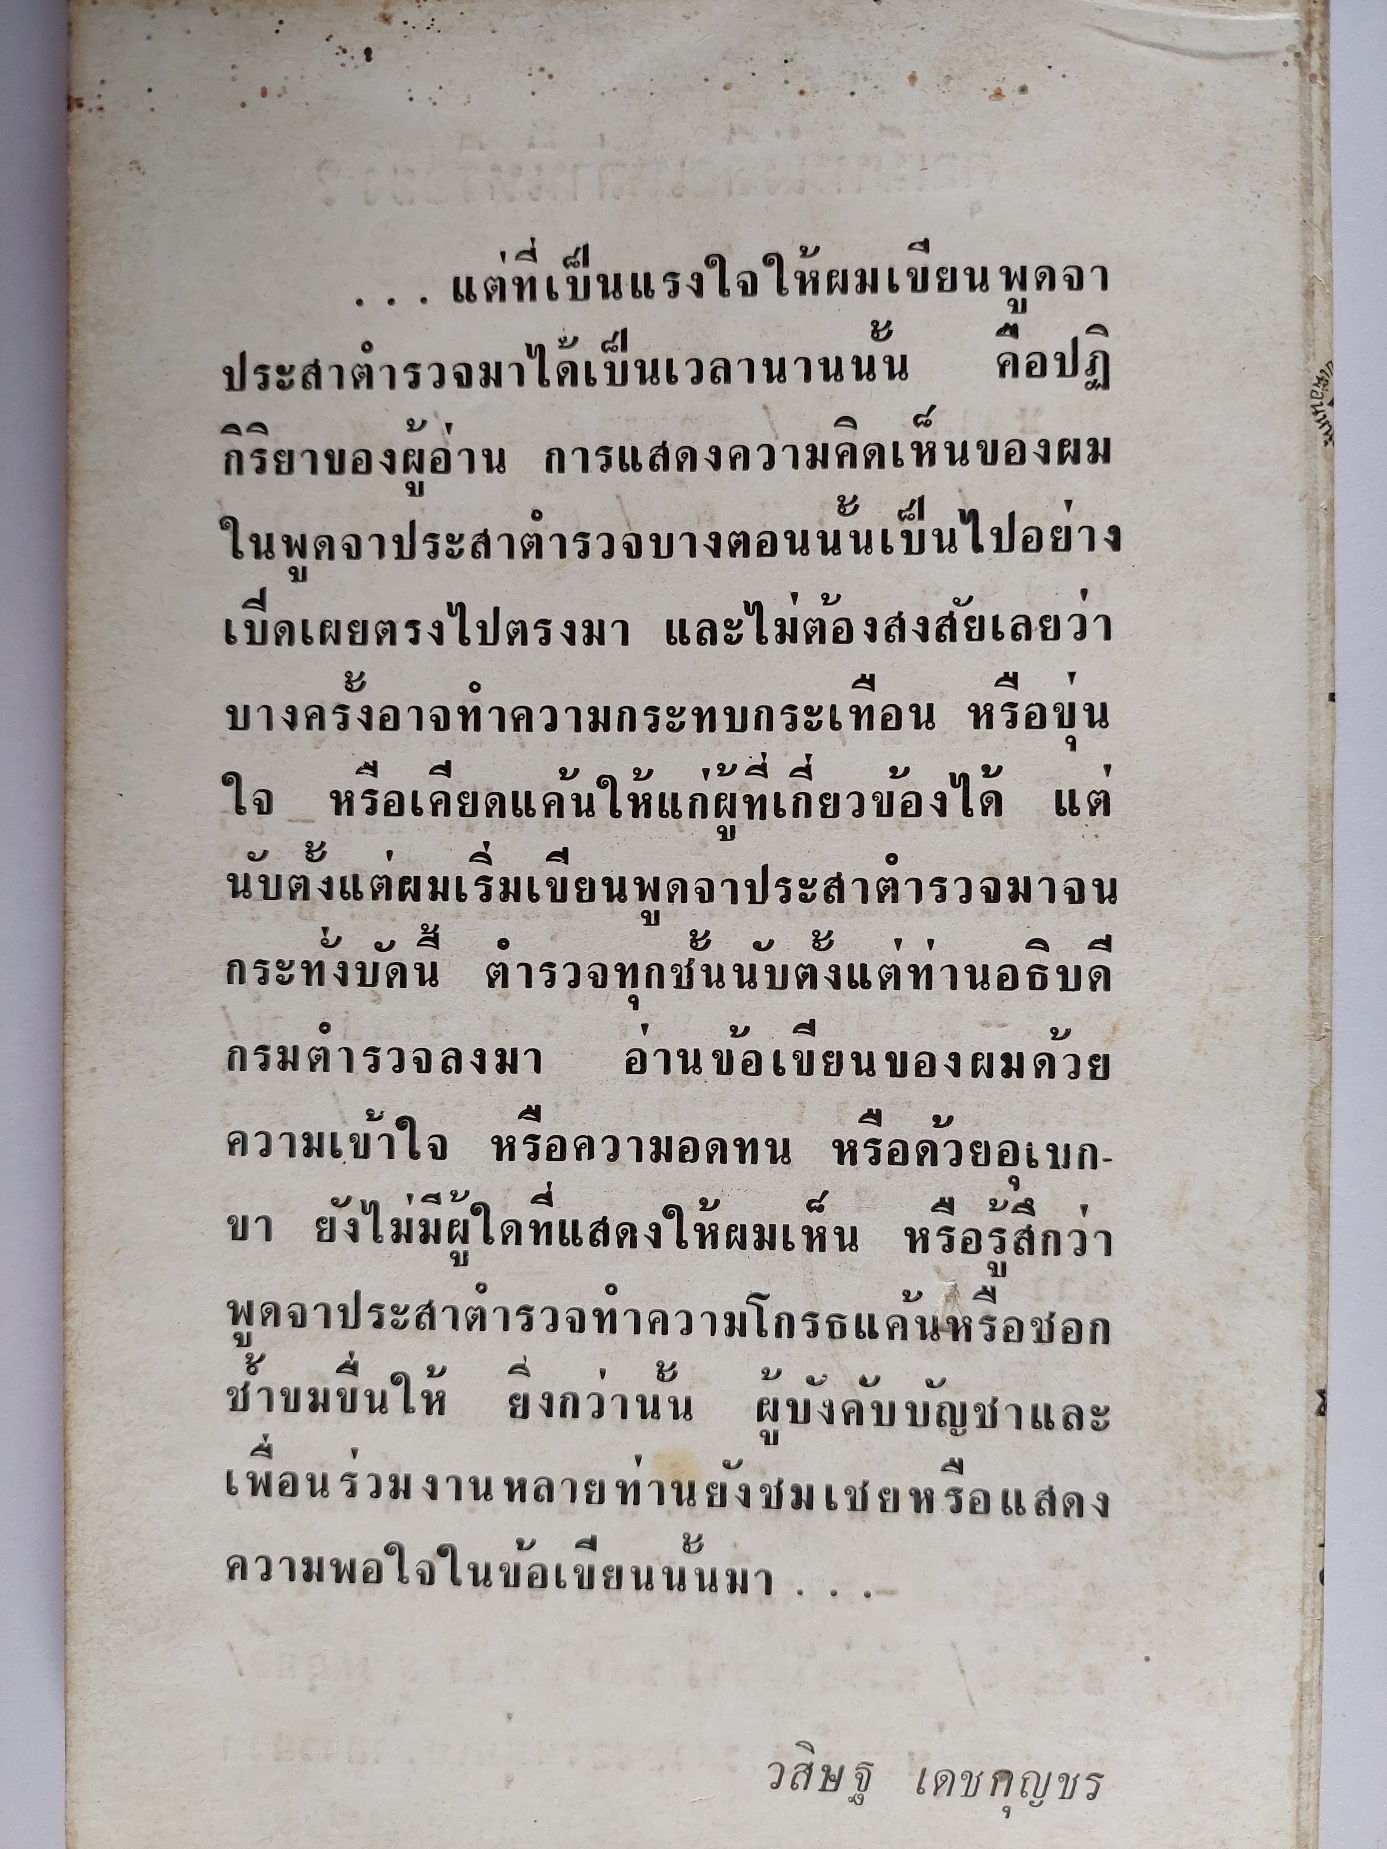 . . . แต่ที่เป็นแรงใจให้ผมเขียนพูดจา
ประสาตำรวจมาได้เป็นเวลานานนั้น คือปฏิ
กิริยาของผู้อ่าน การแสดงความคิดเห็นของผม
ในพูดจาประสาตำรวจบางตอนนั้นเป็นไปอย่าง
เปิดเผยตรงไปตรงมา และไม่ต้องสงสัยเลยว่า
บางครั้งอาจทำความกระทบกระเทือน หรือขุ่น
ใจ หรือเคียดแค้นให้แก่ผู้ที่เกี่ยวข้องได้ แต่
นับตั้งแต่ผมเริ่มเขียนพูดจาประสาตำรวจมาจน
กระทั่งบัดนี้ ตำรวจทุกชั้นนับตั้งแต่ท่านอธิบดี
กรมตำรวจลงมา อ่านข้อเขียนของผมด้วย
ความเข้าใจ หรือความอดทน หรือด้วยอุเบก-
ขา ยังไม่มีผู้ใดที่แสดงให้ผมเห็น หรือรู้สึกว่า
พูดจาประสาตำรวจทำความโกรธแค้นหรือชอก
ช้ำขมขื่นให้ ยิ่งกว่านั้น ผู้บังคับบัญชาและ
เพื่อนร่วมงานหลายท่านยังชมเชยหรือแสดง
ความพอใจในข้อเขียนนั้นมา . . .
วสิษฐ เดชกุญชร